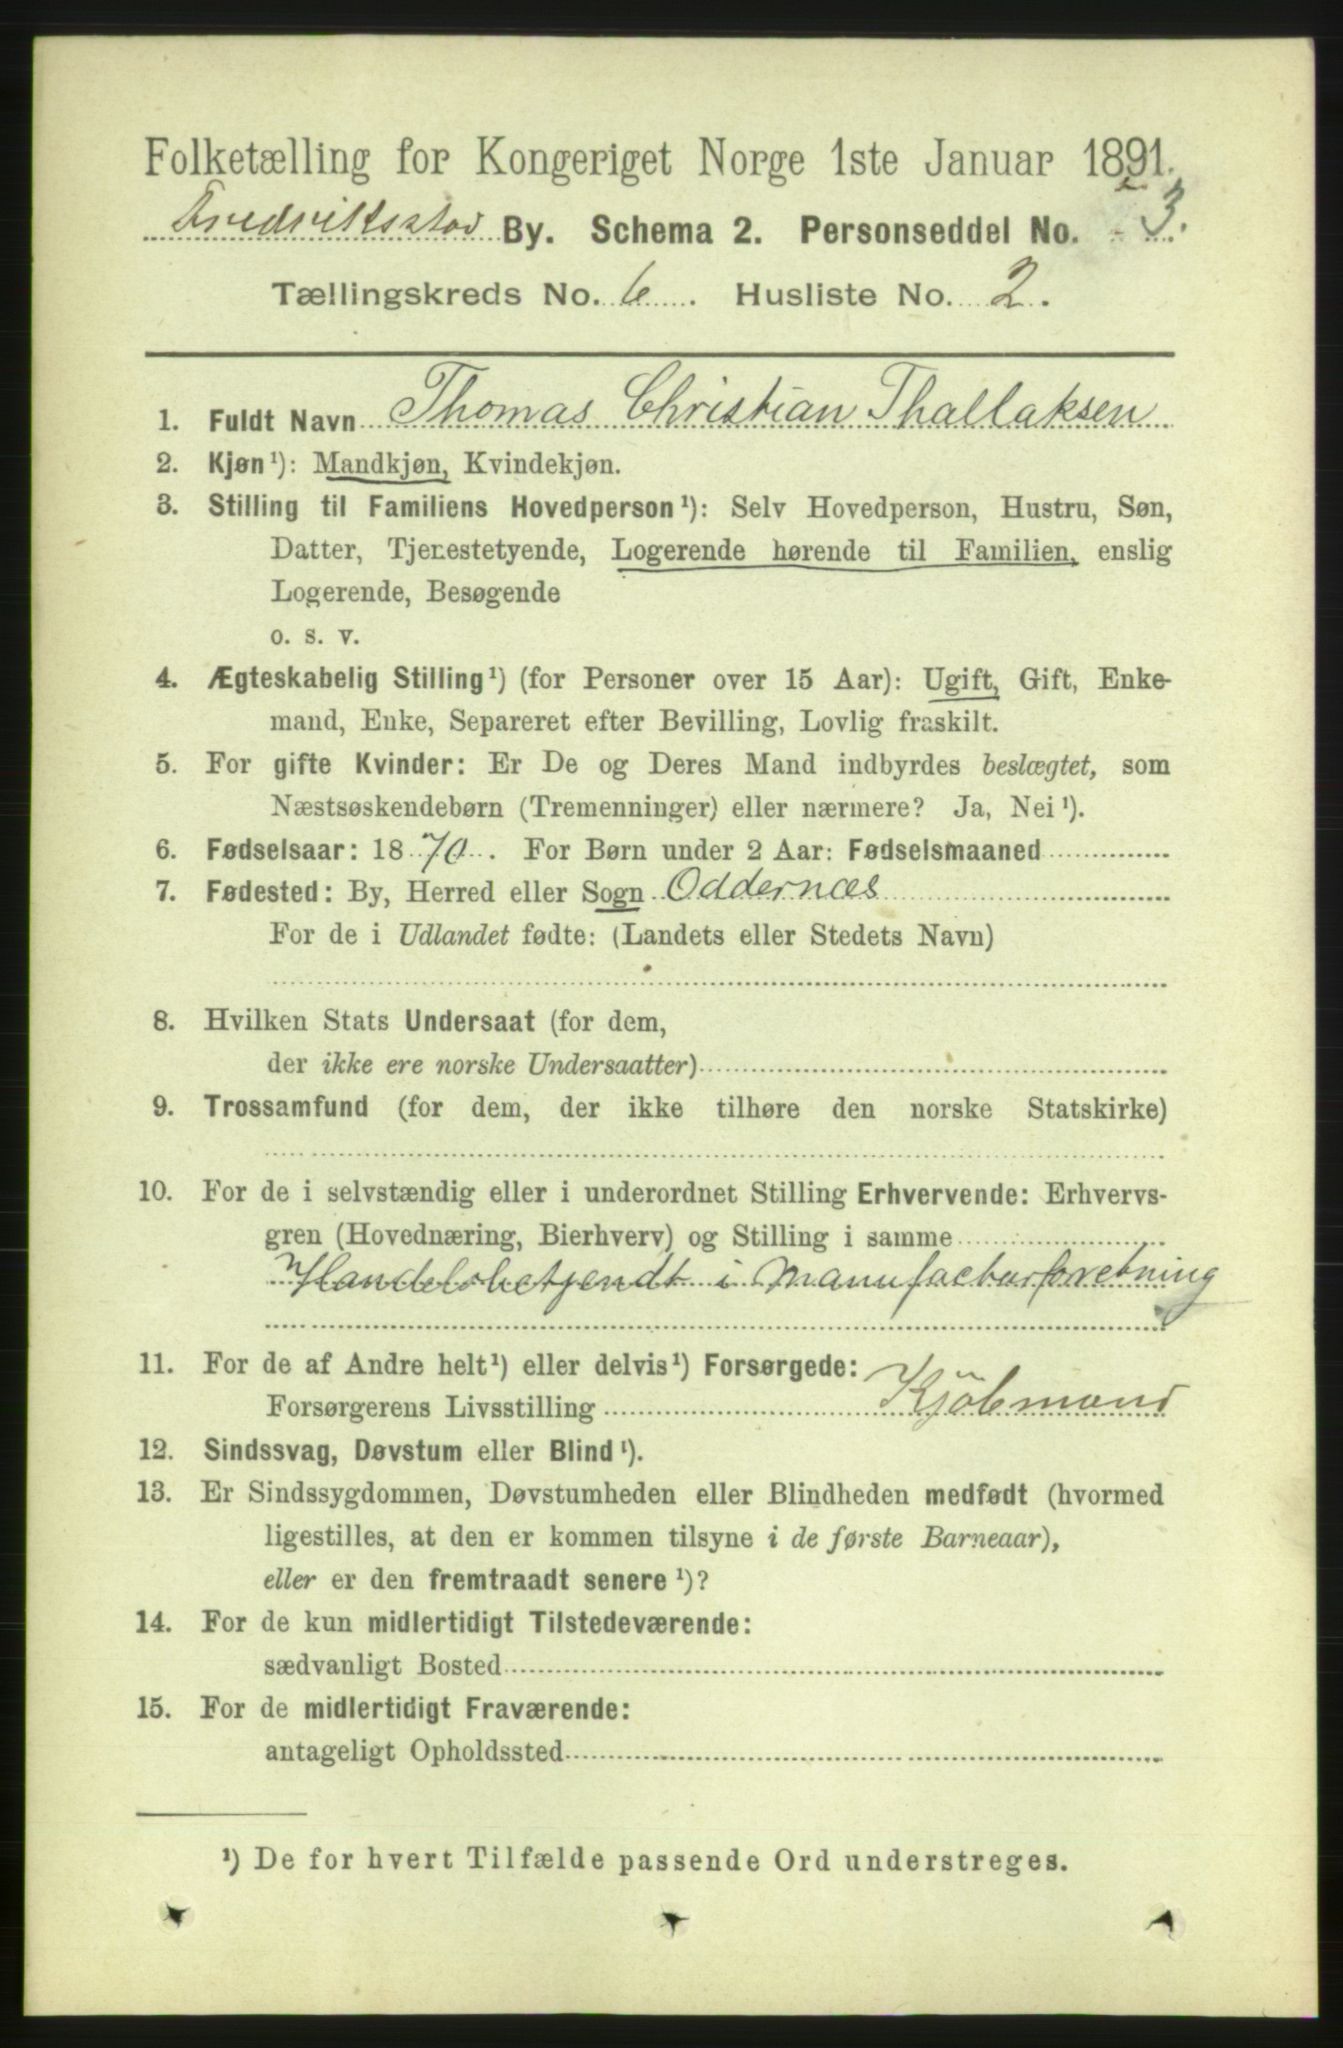 Folketælling for Kongeriget Norge 1ste Januar 1891.
Fredriksstad By. Schema 2. Personseddel No. 3.
Tællingskreds No. 6. Husliste No. 2.
1. Fuldt Navn Thomas Christian Thallaksen
2. Kjøn¹): Mandkjøn, Kvindekjøn.
3. Stilling til Familiens Hovedperson¹): Selv Hovedperson, Hustru, Søn,
Datter, Tjenestetyende, Logerende hørende til Familien, enslig
Logerende, Besøgende
o. s. v.
4. Ægteskabelig Stilling¹) (for Personer over 15 Aar): Ugift, Gift, Enke-
mand, Enke, Separeret efter Bevilling, Lovlig fraskilt.
5. For gifte Kvinder: Er De og Deres Mand indbyrdes beslægtet, som
Næstsøskendebørn (Tremenninger) eller nærmere? Ja, Nei¹).
6. Fødselsaar: 1870. For Børn under 2 Aar: Fødselsmaaned
7. Fødested: By, Herred eller Sogn Oddernæs
For de i Udlandet fødte: (Landets eller Stedets Navn)
8. Hvilken Stats Undersaat (for dem,
der ikke ere norske Undersaatter)
9. Trossamfund (for dem, der ikke tilhøre den norske Statskirke)
10. For de i selvstændig eller i underordnet Stilling Erhvervende: Erhvervs-
gren (Hovednæring, Bierhverv) og Stilling i samme
Handelsbetjendt i Manufacturforretning
11. For de af Andre helt¹) eller delvis¹) Forsørgede:
Forsørgerens Livsstilling Kjöbmand
12. Sindssvag, Døvstum eller Blind¹).
13. Er Sindssygdommen, Døvstumheden eller Blindheden medfødt (hvormed
ligestilles, at den er kommen tilsyne i de første Barneaar),
eller er den fremtraadt senere¹)?
14. For de kun midlertidigt Tilstedeværende:
sædvanligt Bosted
15. For de midlertidigt Fraværende:
antageligt Opholdssted
¹) De for hvert Tilfælde passende Ord understreges.